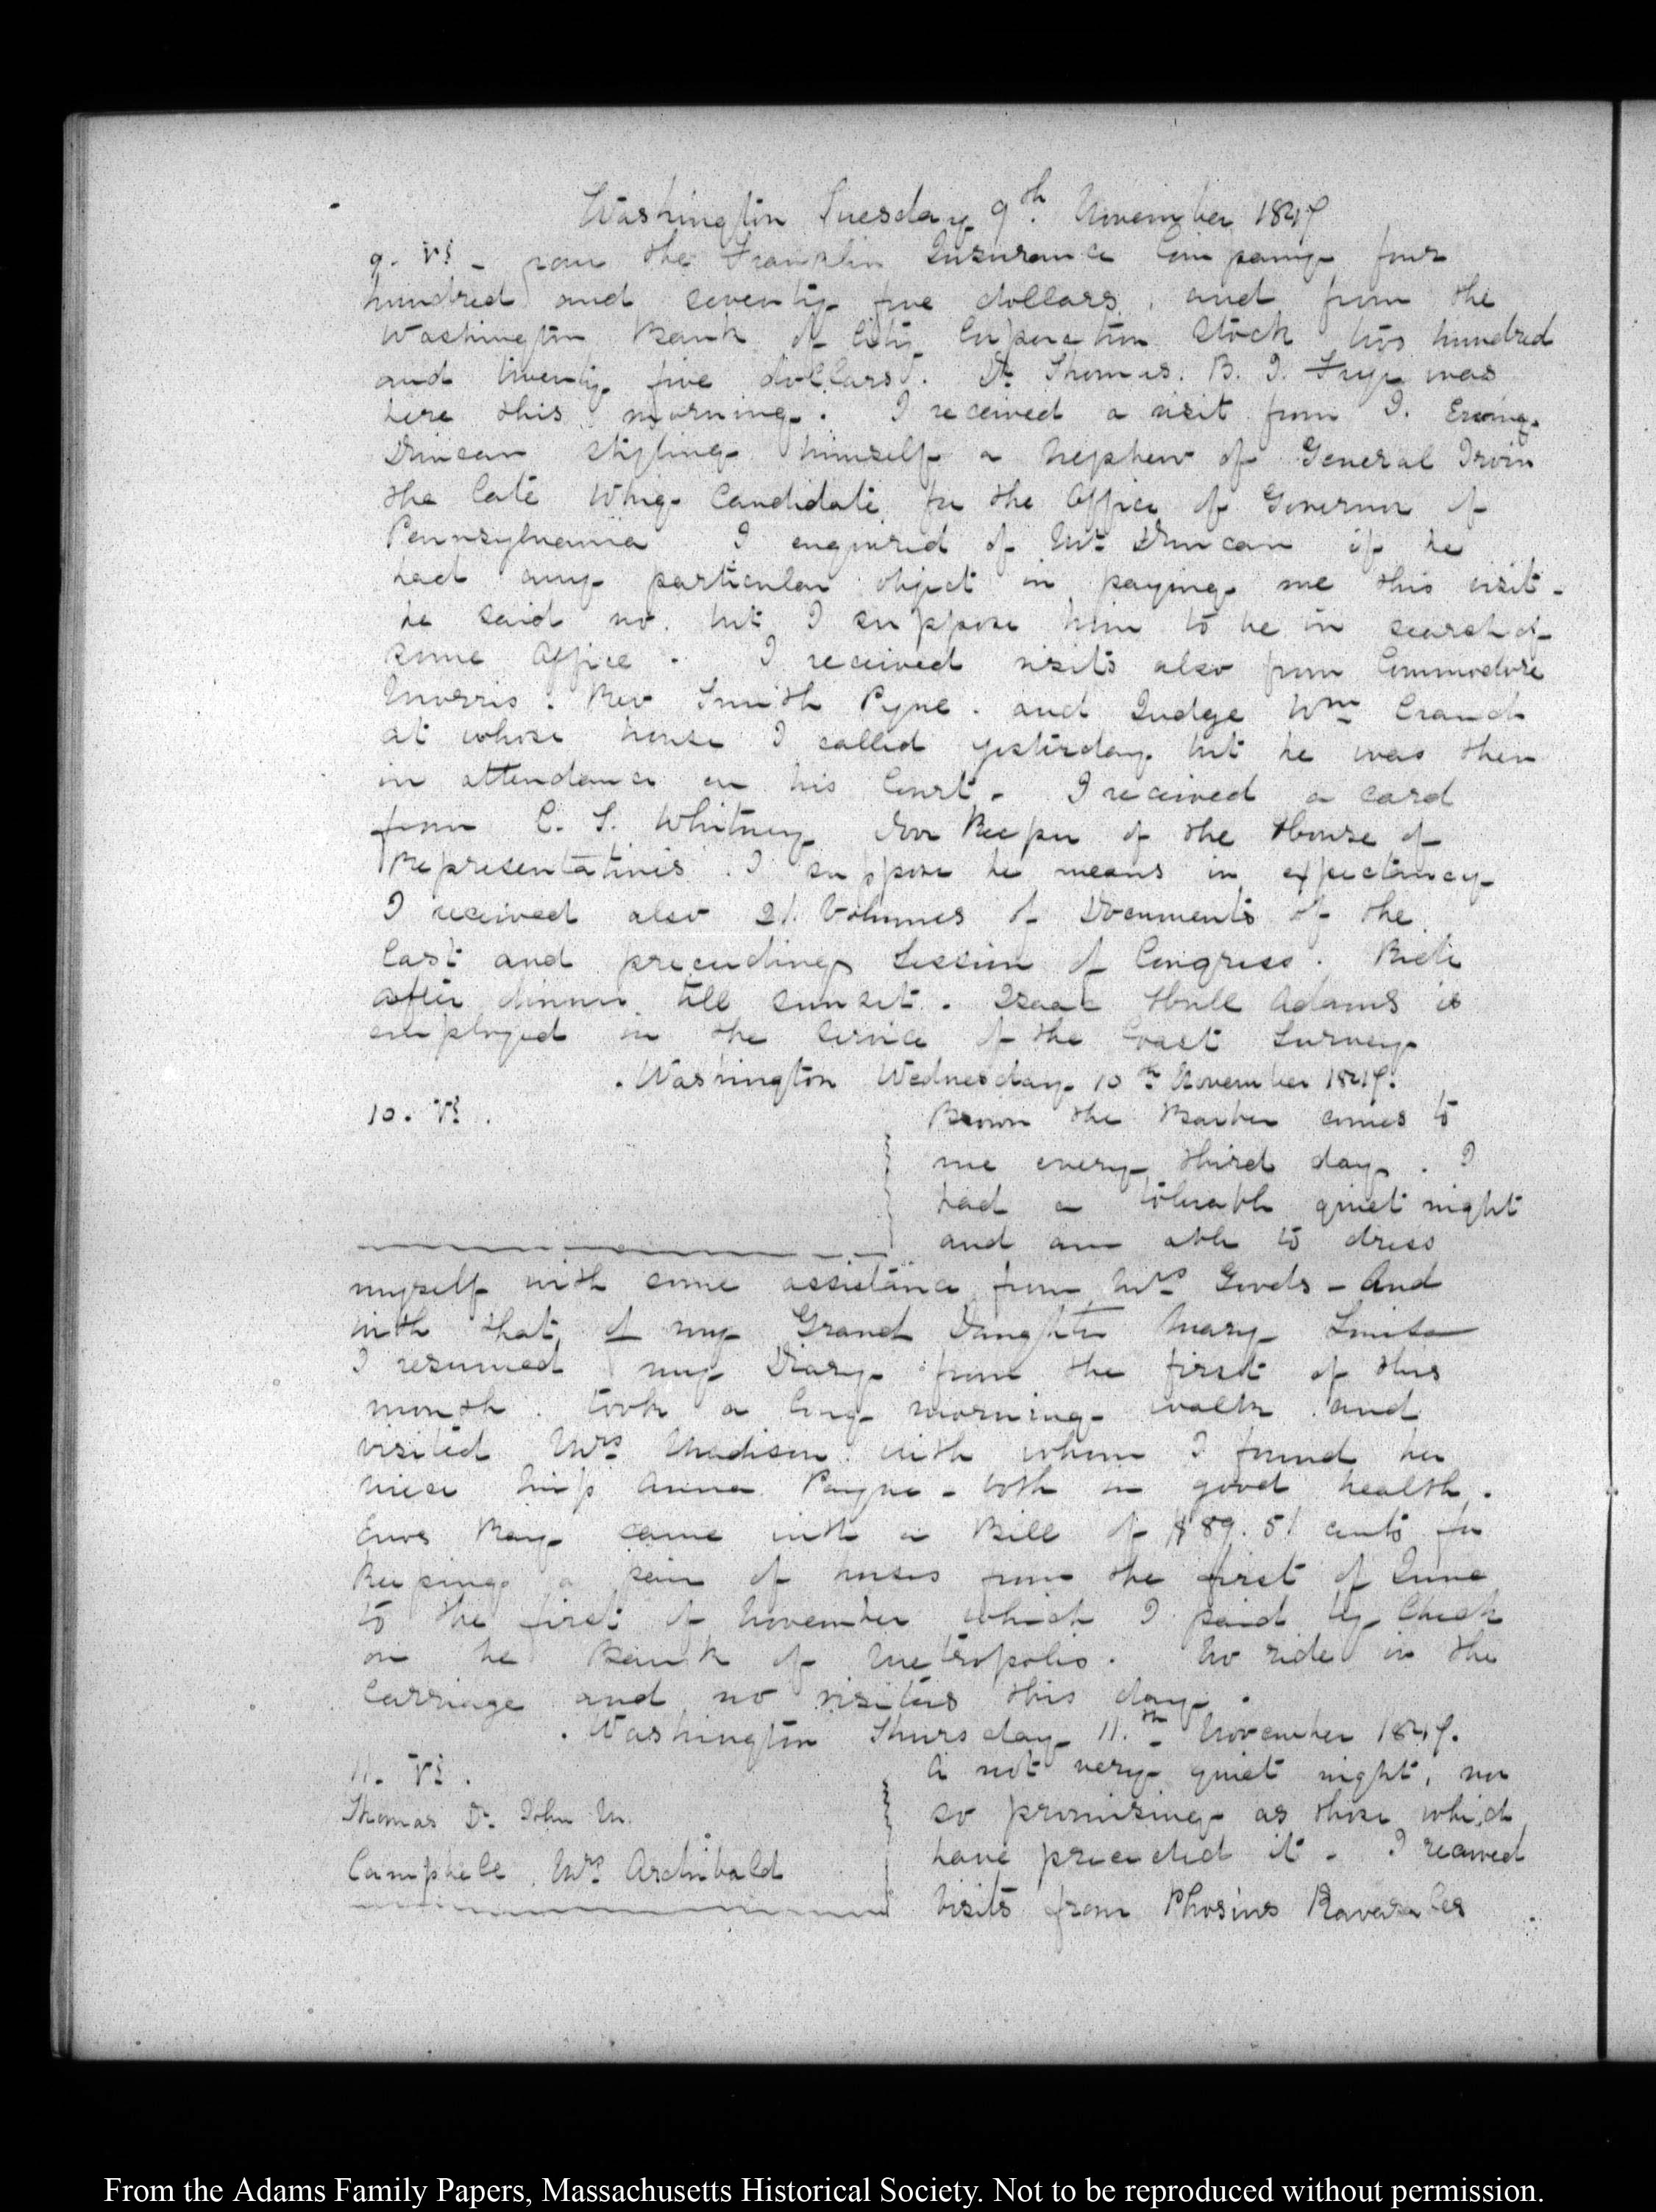 Washington Tuesday 9th November 1847
9. VI. from the Franklin Insurance Company four
hundred and seventy five dollars, and from the
Washington Bank of City Corporation Stock two hundred
and twenty five dollars. Dr Thomas. B. J. Frye was
here this morning. I received a visit from I. Ewing
Duncan styling himself a Nephew of General Irvin
the late Whig Candidate for the Office of Governor of
Pennsylvania I enquired of Mr Duncan if he
had any particular object in paying me this visit -
he said no. but I suppose him to be in search of
some Office. I received visits also from Commodore
Morris. Rev Smith Pyne. and Judge Wm Cranch
at whose house I called yesterday but he was then
in attendance on his Court - I received a card
from C. S. Whitney Door Keeper of the House of
Representatives. I suppose he means in expectancy
I received also 21. Volumes of Documents of the
last and preceeding Session of Congress. Ride
after dinner till sunset. Isaac Hull Adams is
employed in the Service of the Coast Survey
. Washington Wednesday 10th November 1847.
10. VI.
Brown the Barber comes to
me every third day. I
had a tolerable quiet night
and am able to dress
myself with some assistance from Mrs - And
with that of my Grand Daughter Mary Louisa
I resumed my Diary from the first of this
month. took a long morning walk and
visited Mrs Madison with whom I found her
niece Miss Anna Payne - both in good health.
Enos Ray came with a Bill of $89. 51 cents for
Keeping a pair of horses from the first of June
to the first of November which I paid by Check
on he Bank of Metropolis. No ride in the
Carriage and no visitors this day.
. Washington Thursday 11.th November 1847.
11. VI.
Thomas Dr John M.
Campbell, Mrs Archibald
A not very quiet night, nor
so promising as those which
have preceded it - I received
Visits from